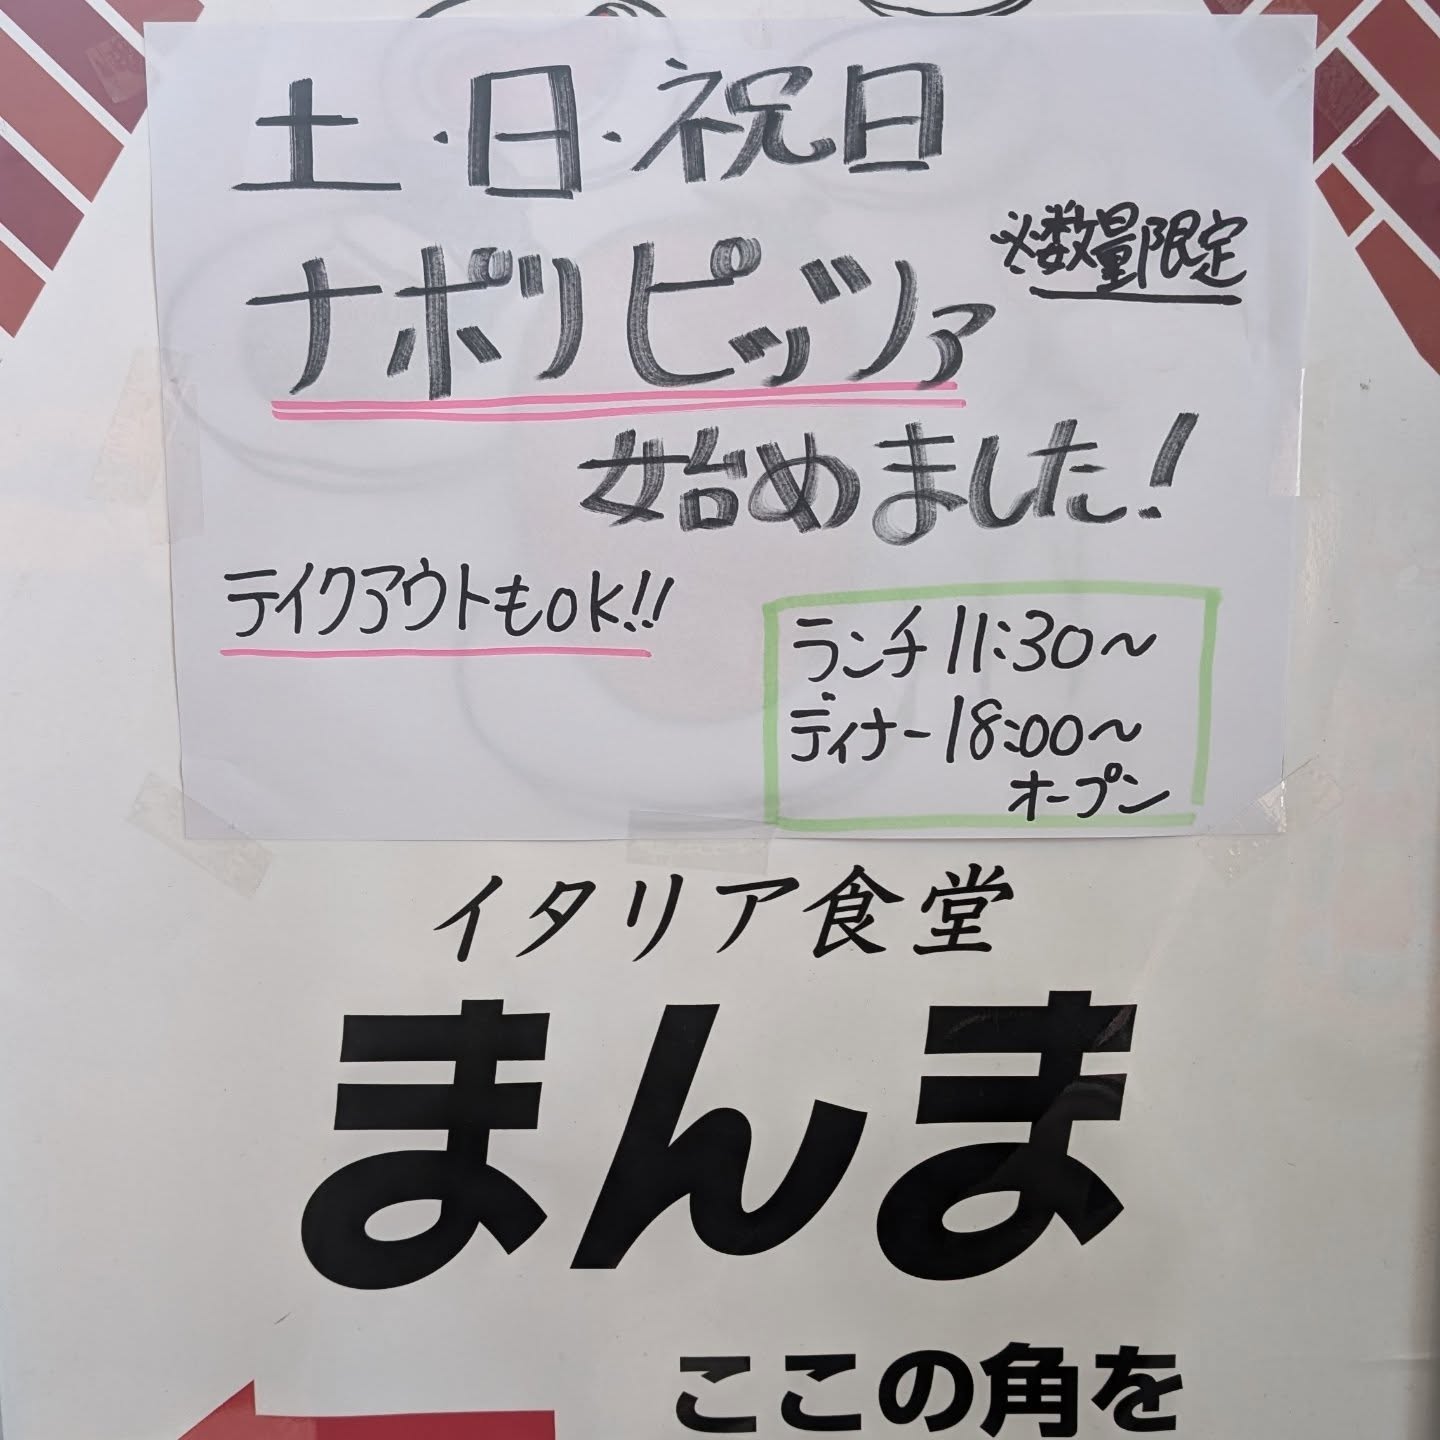 土・日・祝日
※数量限定
ナポリピッツァ
始めました!
テイクアウトもOK!!
ランチ 11:30～
ディナー 18:00～
オープン
イタリア食堂
まんま
ここの角を